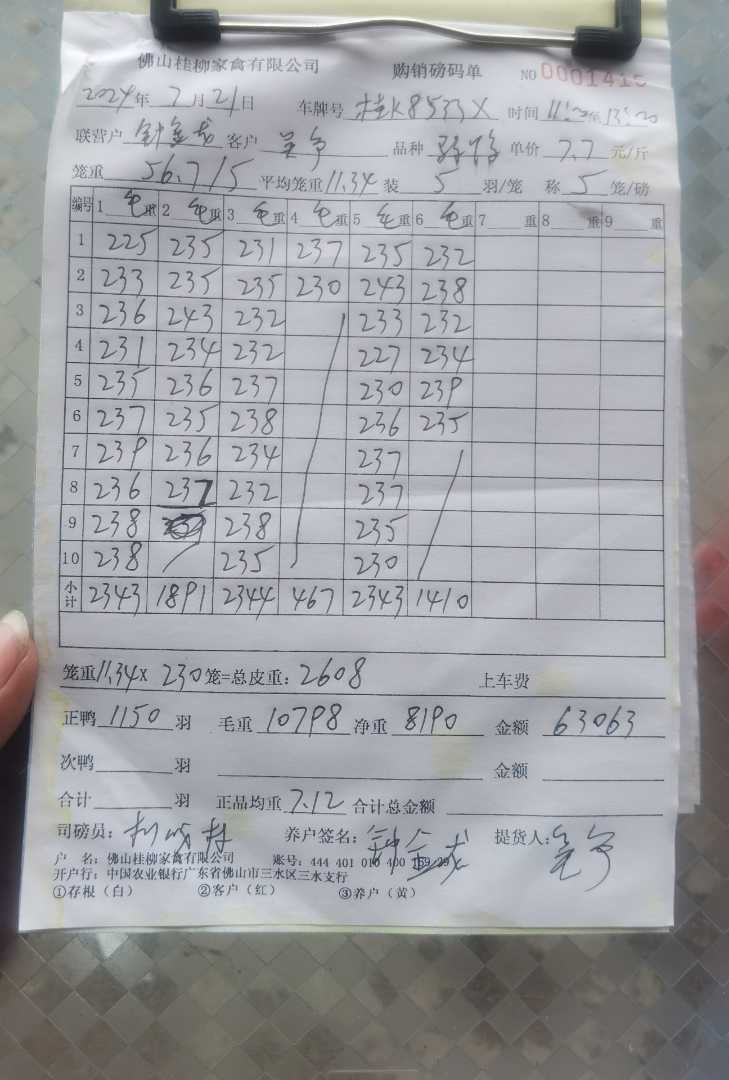 佛山桂柳家禽有限公司 购销磅码单 NO 0001415
2024年7月21日 车牌号 桂K8533X 时间 11:20至13:20
联营户 钟金龙 客户 品种 单价 7.7 元/斤
笼重 56.7/5 平均笼重 11.34 装 5 羽/笼 称 5 笼/磅
编号 1 毛重 2 毛重 3 毛重 4 毛重 5 毛重 6 毛重 7 重 8 重 9 重
1 225 235 231 237 235 232
2 233 235 235 230 243 238
3 236 243 232 233 232
4 231 234 232 227 234
5 235 236 237 230 239
6 237 235 238 236 235
7 239 236 234 237
8 236 237 232 237
9 238 238 235
10 238 235 230
小计 2343 1891 2344 467 2343 1410
笼重 11.34 X 230 笼=总皮重: 2608 上车费
正鸭 1150 羽 毛重 10798 净重 8190 金额 63063
次鸭 羽 金额
合计 羽 正品均重 7.12 合计总金额
司磅员: 养户签名: 钟金龙 提货人:
户 名: 佛山桂柳家禽有限公司 账号: 444 401 010 400
开户行: 中国农业银行广东省佛山市三水区三水支行
①存根(白) ②客户(红) ③养户(黄)